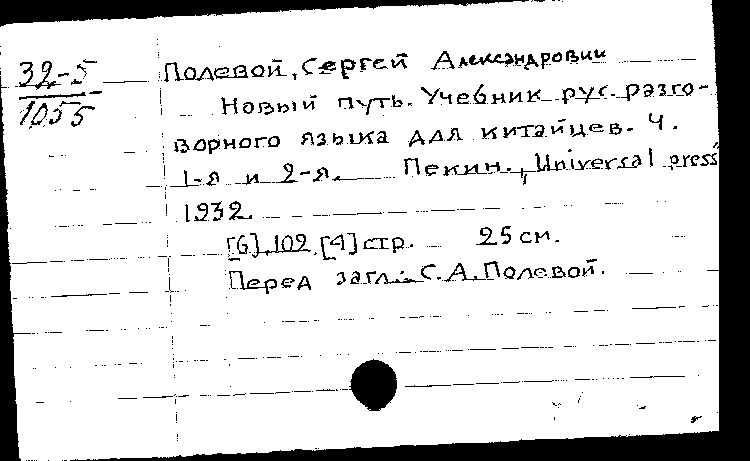 32-5
1055
Полевой, Сергей Александрович
Новый путь. Учебник рус. разго-
ворного языка для китайцев. Ч.
1-я и 2-я. Пекин., Universal press
1932.
[6], 102, [4] стр. 25 см.
Перед загл.: С. А. Полевой.